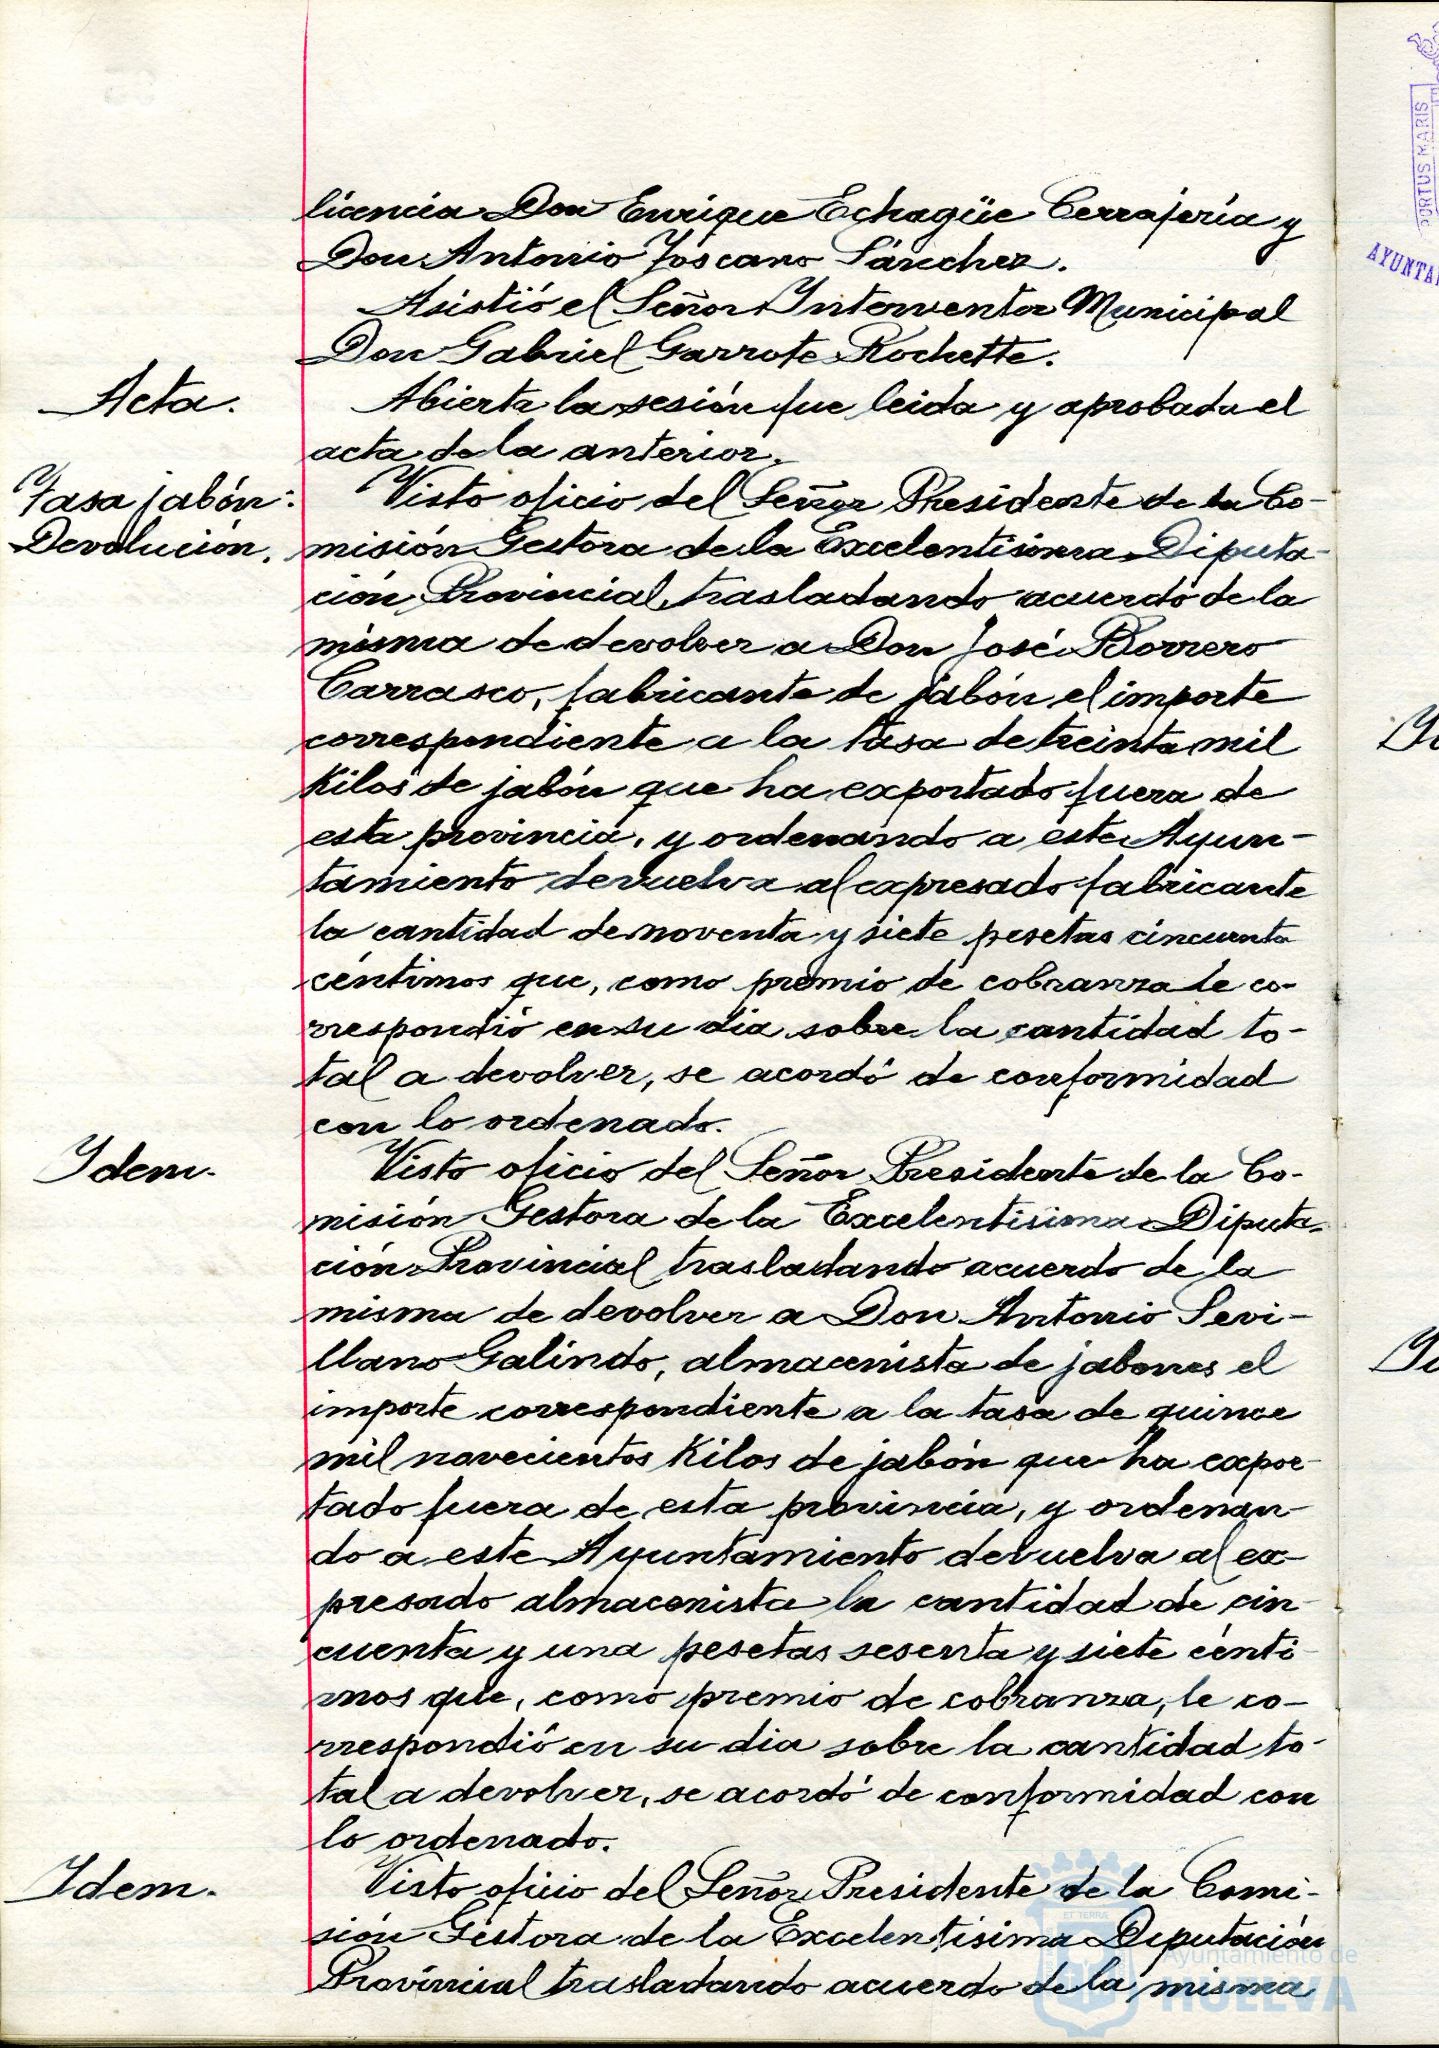 licencia Don Enrique Echagüe Cerrajería y
Don Antonio Toscano Sánchez.
Asistió el Señor Interventor Municipal
Don Gabriel Garrote Rochette.
Acta.
Abierta la sesión fue leida y aprobada el
acta de la anterior.
Tasa jabón:
Devolución.
Visto oficio del Señor Presidente de la Co-
misión Gestora de la Excelentisima Diputa-
ción Provincial trasladando acuerdo de la
misma de devolver a Don José Borrero
Carrasco, fabricante de jabón el importe
correspondiente a la tasa de treinta mil
kilos de jabón que ha exportado fuera de
esta provincia, y ordenando a este Ayun-
tamiento devuelva al expresado fabricante
la cantidad de noventa y siete pesetas cincuenta
céntimos que, como premio de cobranza le co-
rrespondió en su dia sobre la cantidad to-
tal a devolver, se acordó de conformidad
con lo ordenado.
Idem.
Visto oficio del Señor Presidente de la Co-
misión Gestora de la Excelentisima Diputa-
ción Provincial trasladando acuerdo de la
misma de devolver a Don Antonio Sevi-
llano Galindo, almacenista de jabones el
importe correspondiente a la tasa de quince
mil novecientos kilos de jabón que ha expor-
tado fuera de esta provincia, y ordenan-
do a este Ayuntamiento devuelva al ex-
presado almacenista la cantidad de cin-
cuenta y una pesetas sesenta y siete cénti-
mos que, como premio de cobranza, le co-
rrespondió en su dia sobre la cantidad to-
tal a devolver, se acordó de conformidad con
lo ordenado.
Idem.
Visto oficio del Señor Presidente de la Comi-
sión Gestora de la Excelentísima Diputación
Provincial trasladando acuerdo de la misma
PORTUS MARIS
AYUNTA
ET TERRÆ
Ayuntamiento de
HUELVA